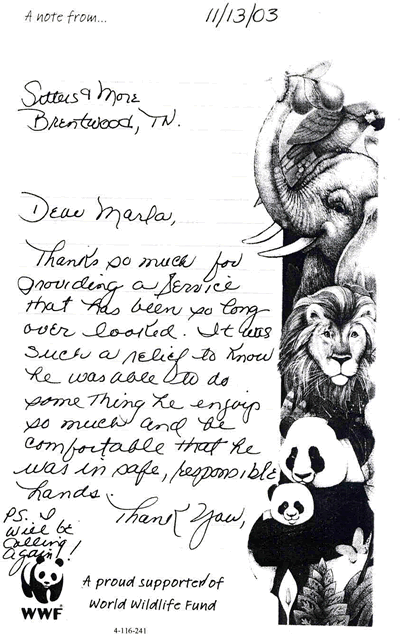 A note from...
11/13/03
Sitters & More
Brentwood, TN.
Dear Marla,
Thanks so much for
providing a service
that has been so long
over looked. It was
such a relief to know
he was able to do
some thing he enjoys
so much and be
comfortable that he
was in safe, responsible
hands.
Thank You,
P.S. I
will be
calling
again!
WWF
A proud supporter of
World Wildlife Fund
4-116-241